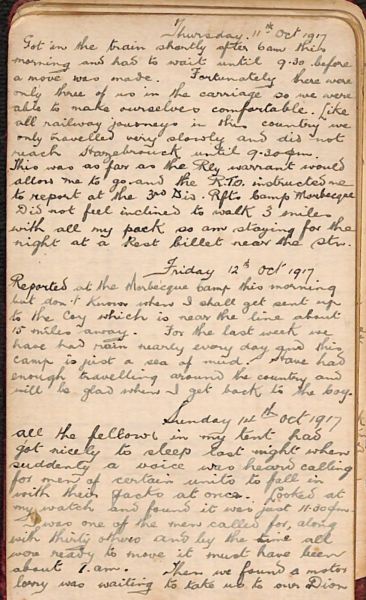 Thursday. 11th Oct 1917
Got in the train shortly after 6am this
morning and had to wait until 9-30 before
a move was made. Fortunately there were
only three of us in the carriage so we were
able to make ourselves comfortable. Like
all railway journeys in this country we
only travelled very slowly and did not
reach Hazebrouck until 9-30pm.
This was as far as the Rly warrant would
allow me to go and the R.T.O. instructed me
to report at the 3rd Div. Rfts Camp Morbecque
Did not feel inclined to walk 3 miles
with all my pack so am staying for the
night at a Rest billet near the Stn.
Friday 12th Oct 1917.
Reported at the Morbecque Camp this morning
but don't know when I shall get sent up
to the Coy which is near the line about
15 miles away. For the last week we
have had rain nearly every day and this
camp is just a sea of mud. Have had
enough travelling around the country and
will be glad when I get back to the Coy.
Sunday 14th Oct 1917
All the fellows in my tent had
got nicely to sleep last night when
suddenly a voice was heard calling
for men of certain units to fall in
with their packs at once. Looked at
my watch and found it was just 11-30pm
I was one of the men called for, along
with thirty others and by the time all
were ready to move it must have been
about 1.am. Then we found a motor
lorry was waiting to take us to our Dion